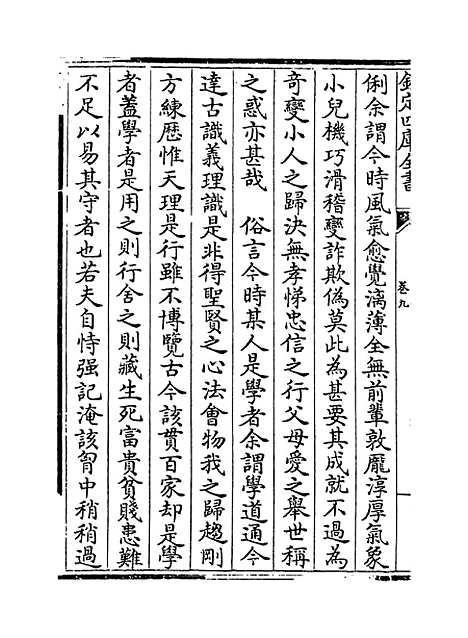 欽定四庫全書
卷九
俐余謂今時風氣愈覺漓薄全無前輩敦龎淳厚氣象
小兒機巧滑稽變詐欺偽莫此為甚要其成就不過為
奇變小人之歸決無孝悌忠信之行父母愛之舉世稱
之惑亦甚哉　俗言今時某人是學者余謂學道通今
達古識義理識是非得聖賢之心法會物我之歸趨剛
方練歴惟天理是行雖不博覽古今該貫百家却是學
者蓋學者是用之則行舍之則藏生死富貴貧賤患難
不足以易其守者也若夫自恃强記淹該胷中稍稍過